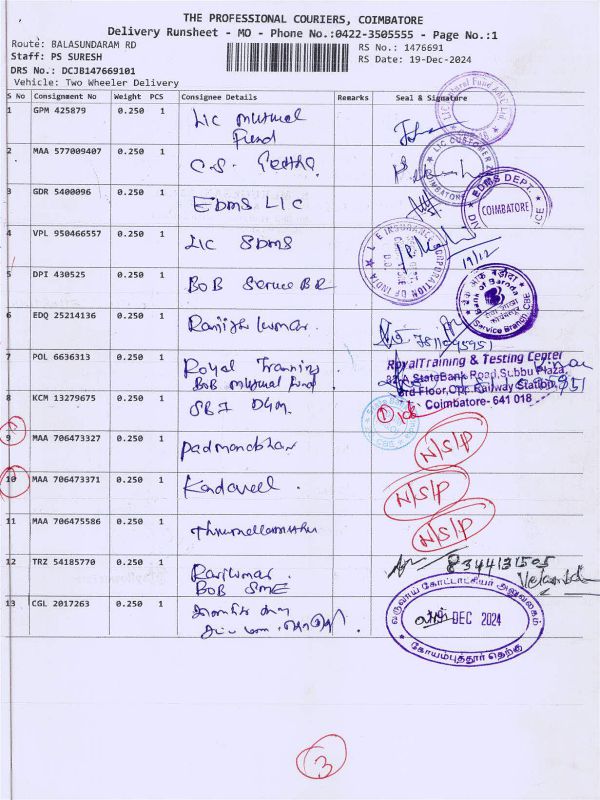 THE PROFESSIONAL COURIERS, COIMBATORE
Delivery Runsheet - MO - Phone No.:0422-3505555 - Page No.:1
Route: BALASUNDARAM RD
RS No.: 1476691
Staff: PS SURESH
RS Date: 19-Dec-2024
DRS No.: DCJB147669101
Vehicle: Two Wheeler Delivery
S No Consignment No Weight PCS Consignee Details Remarks Seal & Signature
1 GPM 425879 0.250 1 LIC mutual
Fund
2 MAA 577009407 0.250 1 C.S.
LIC CUSTOMER
3 GDR 5400096 0.250 1 EDMS LIC
EDMS DEPT.
COIMBATORE
4 VPL 950466557 0.250 1 LIC EDMS
19/12
5 DPI 430525 0.250 1 BOB Service BR
बैंक ऑफ़ बड़ौदा
Bank of Baroda
Service Branch, CBE
6 EDQ 25214136 0.250 1 Ranjith Kumar.
7 POL 6636313 0.250 1 Royal Training
BOB mutual Fund
Royal Training & Testing Center
StateBank Road, Subbu Plaza,
3rd Floor, Opp. Railway Station,
Coimbatore- 641 018
8 KCM 13279675 0.250 1 SBI DGM.
9 MAA 706473327 0.250 1 Padmanabhan N/S/P
10 MAA 706473371 0.250 1 N/S/P
11 MAA 706475586 0.250 1 N/S/P
12 TRZ 54185770 0.250 1 Rajkumar.
BOB SME
8344131505
13 CGL 2017263 0.250 1
வருவாய் கோட்டாட்சியர் அலுவலகம்
DEC 2024
கோயம்புத்தூர் தெற்கு
3